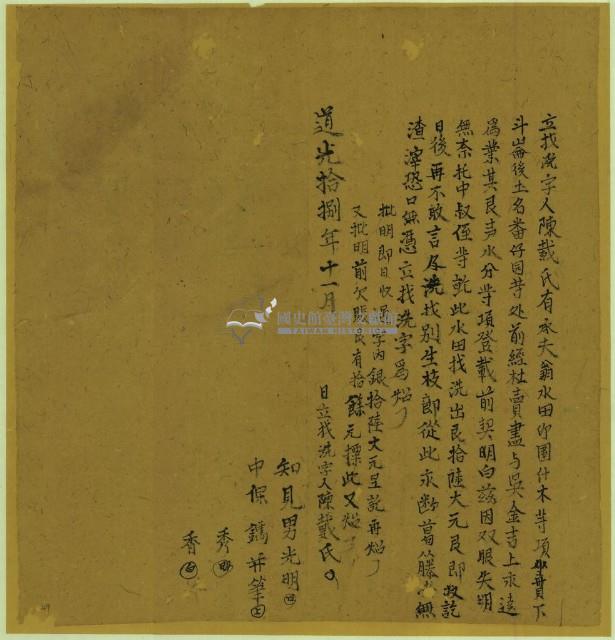 立找洗字人陳戴氏有承夫翁水田竹圍什木等項貫下
斗崙後土名番仔園等处前經杜賣盡与吳金吉上永遠
為業其艮声水分等項登載前契明白茲因双眼失明
無奈托中叔侄等乾此水田找洗出艮拾陸大元艮即收訖
日後再不敢言及洗找別生枝節從此永斷葛籐無
渣滓恐口無憑立找洗字為炤
批明即日收字內銀拾陸大元呈訖再炤
又批明前欠有拾餘元摽此又炤
道光拾捌年十一月 日立找洗字人陳戴氏
知見男光明
中保鐫并筆
秀
香
國史館臺灣文獻館
TAIWAN HISTORICA